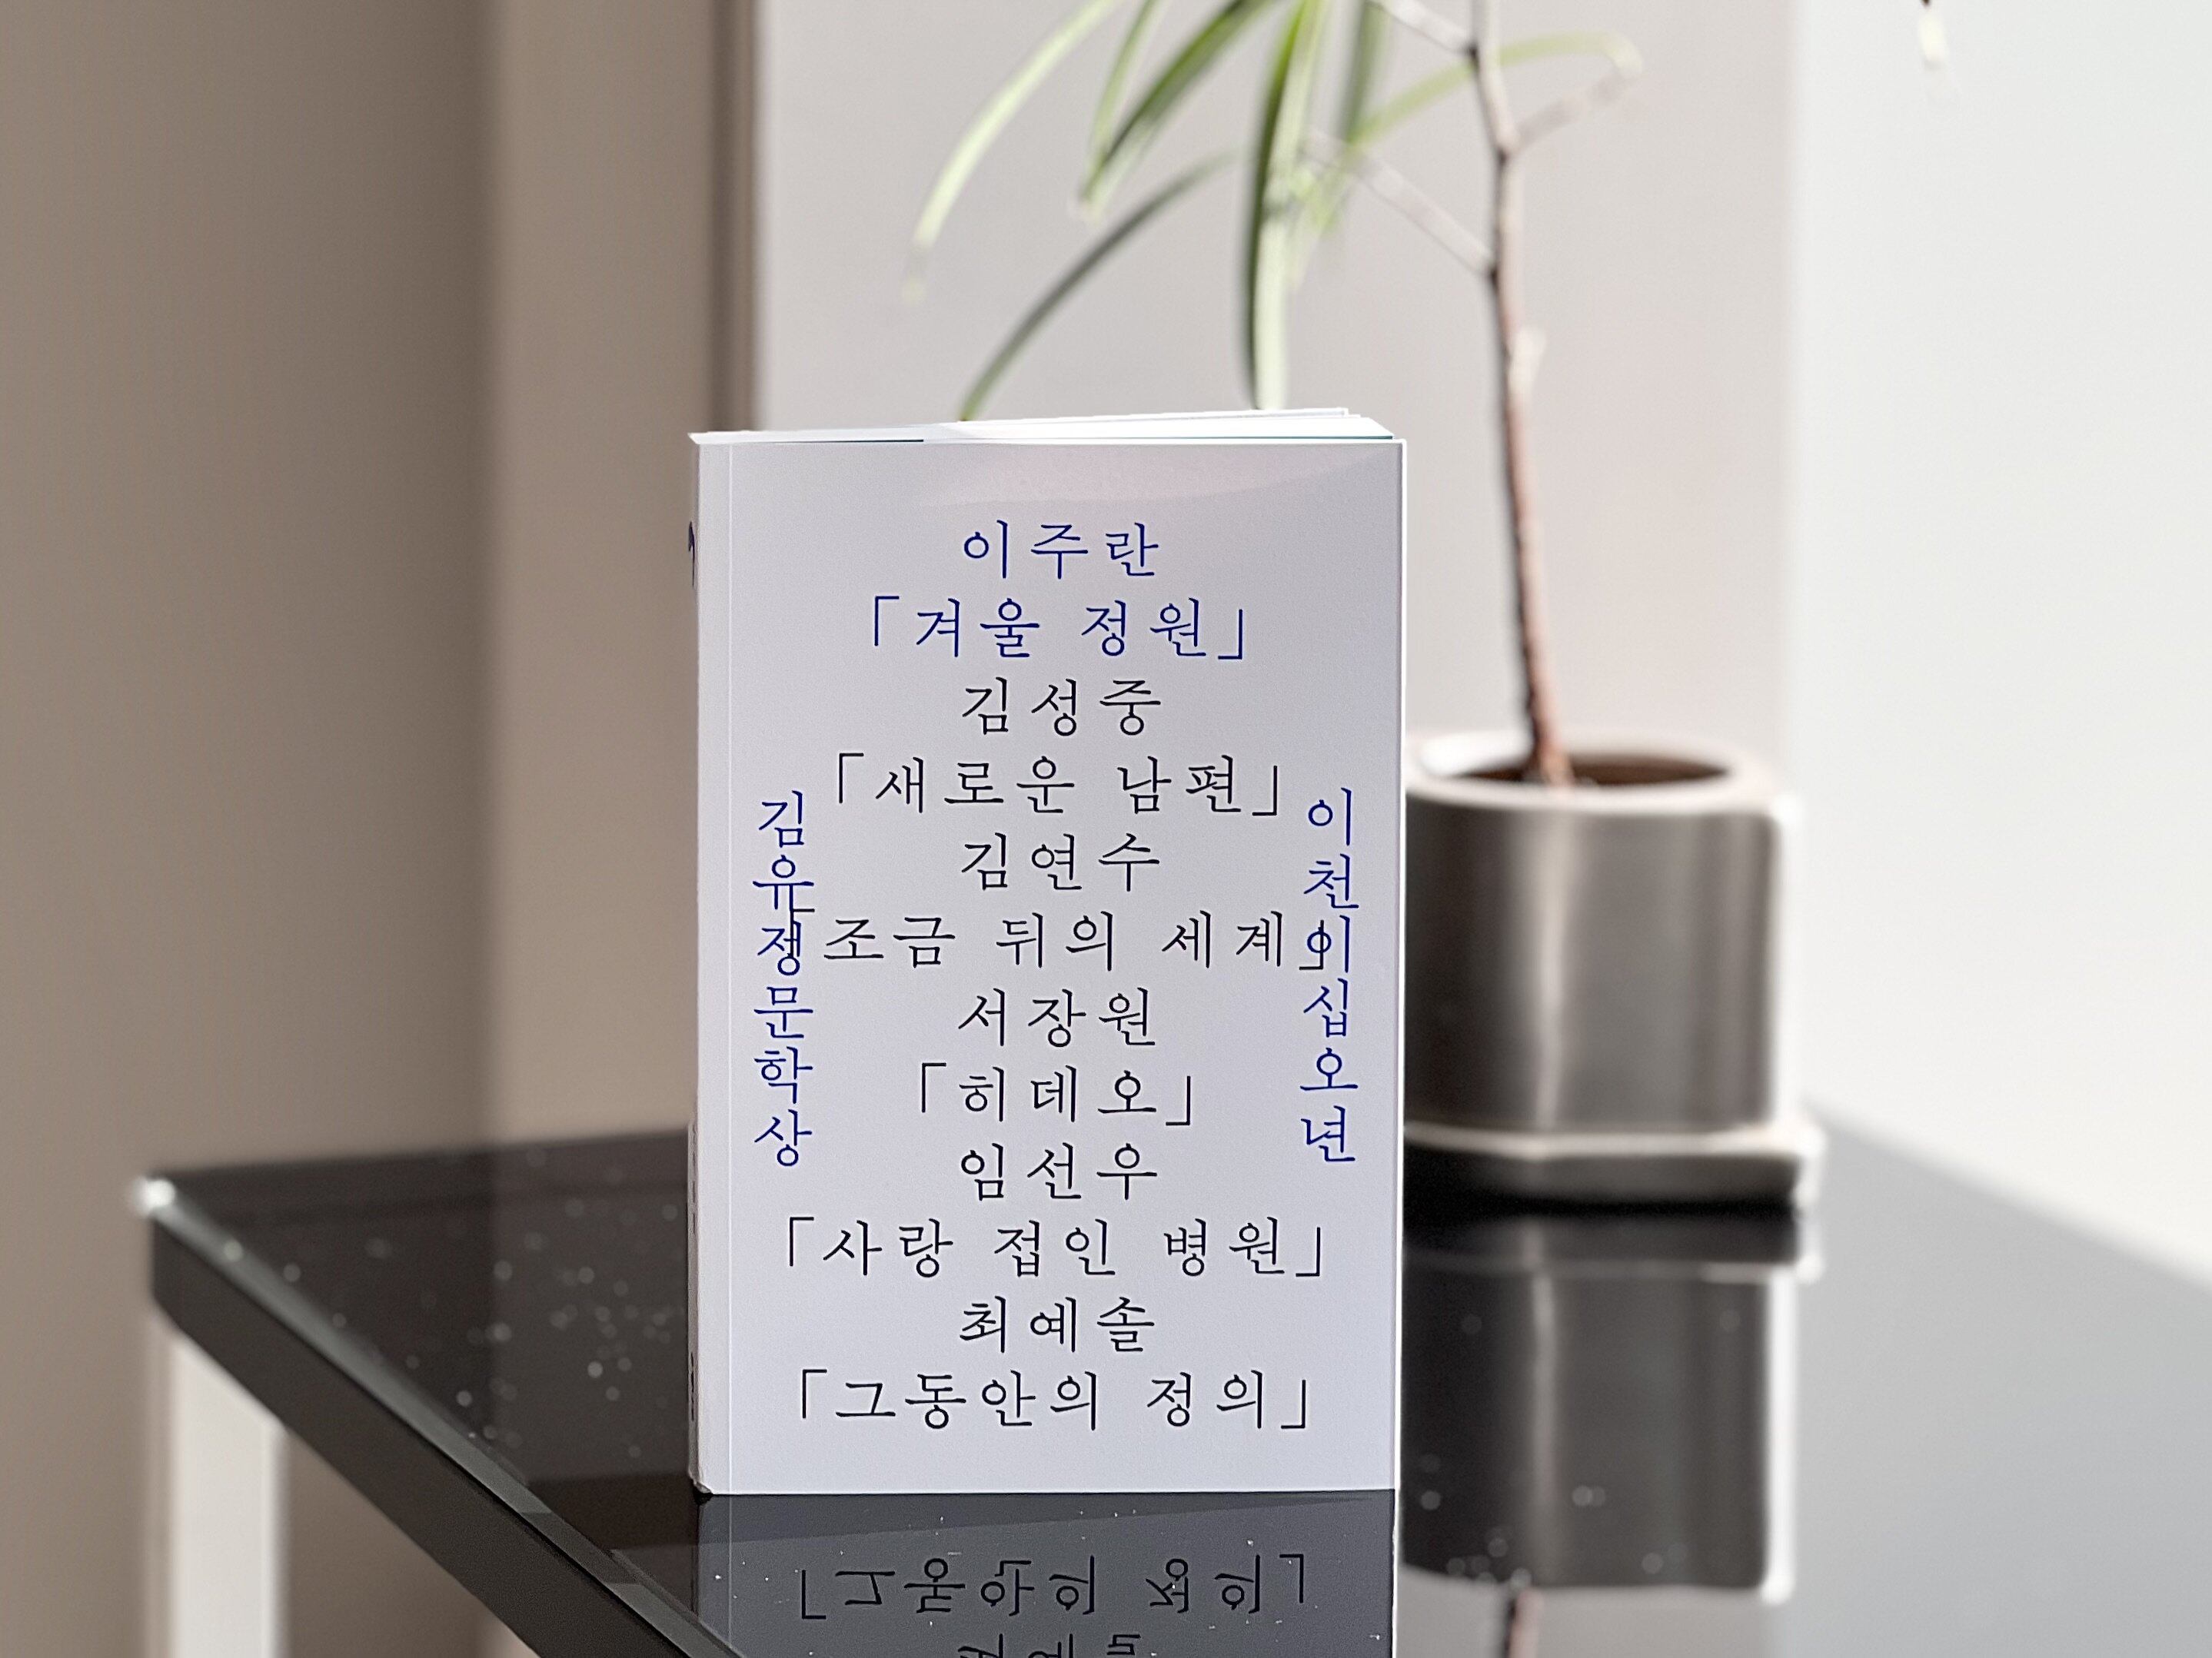 이주란
「겨울 정원」
김성중
「새로운 남편」
김연수
「조금 뒤의 세계」
서장원
「히데오」
임선우
「사랑 접인 병원」
최예솔
「그동안의 정의」
김유정문학상
이천이십오년